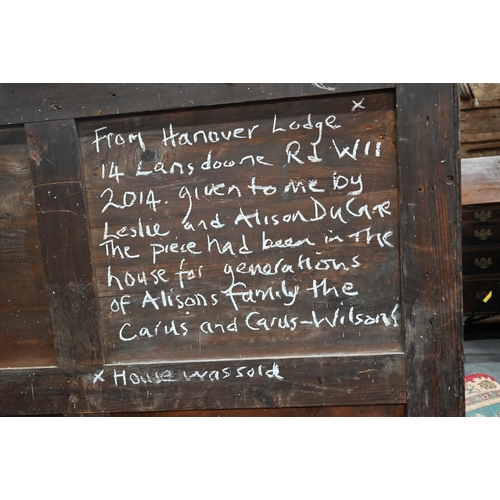 From Hanover Lodge x
14 Lansdowne Rd W11
2014. given to me by
Leslie and Alison DuCane
The piece had been in the
house for generations
of Alisons family the
Carus and Carus-Wilsons
x House was sold